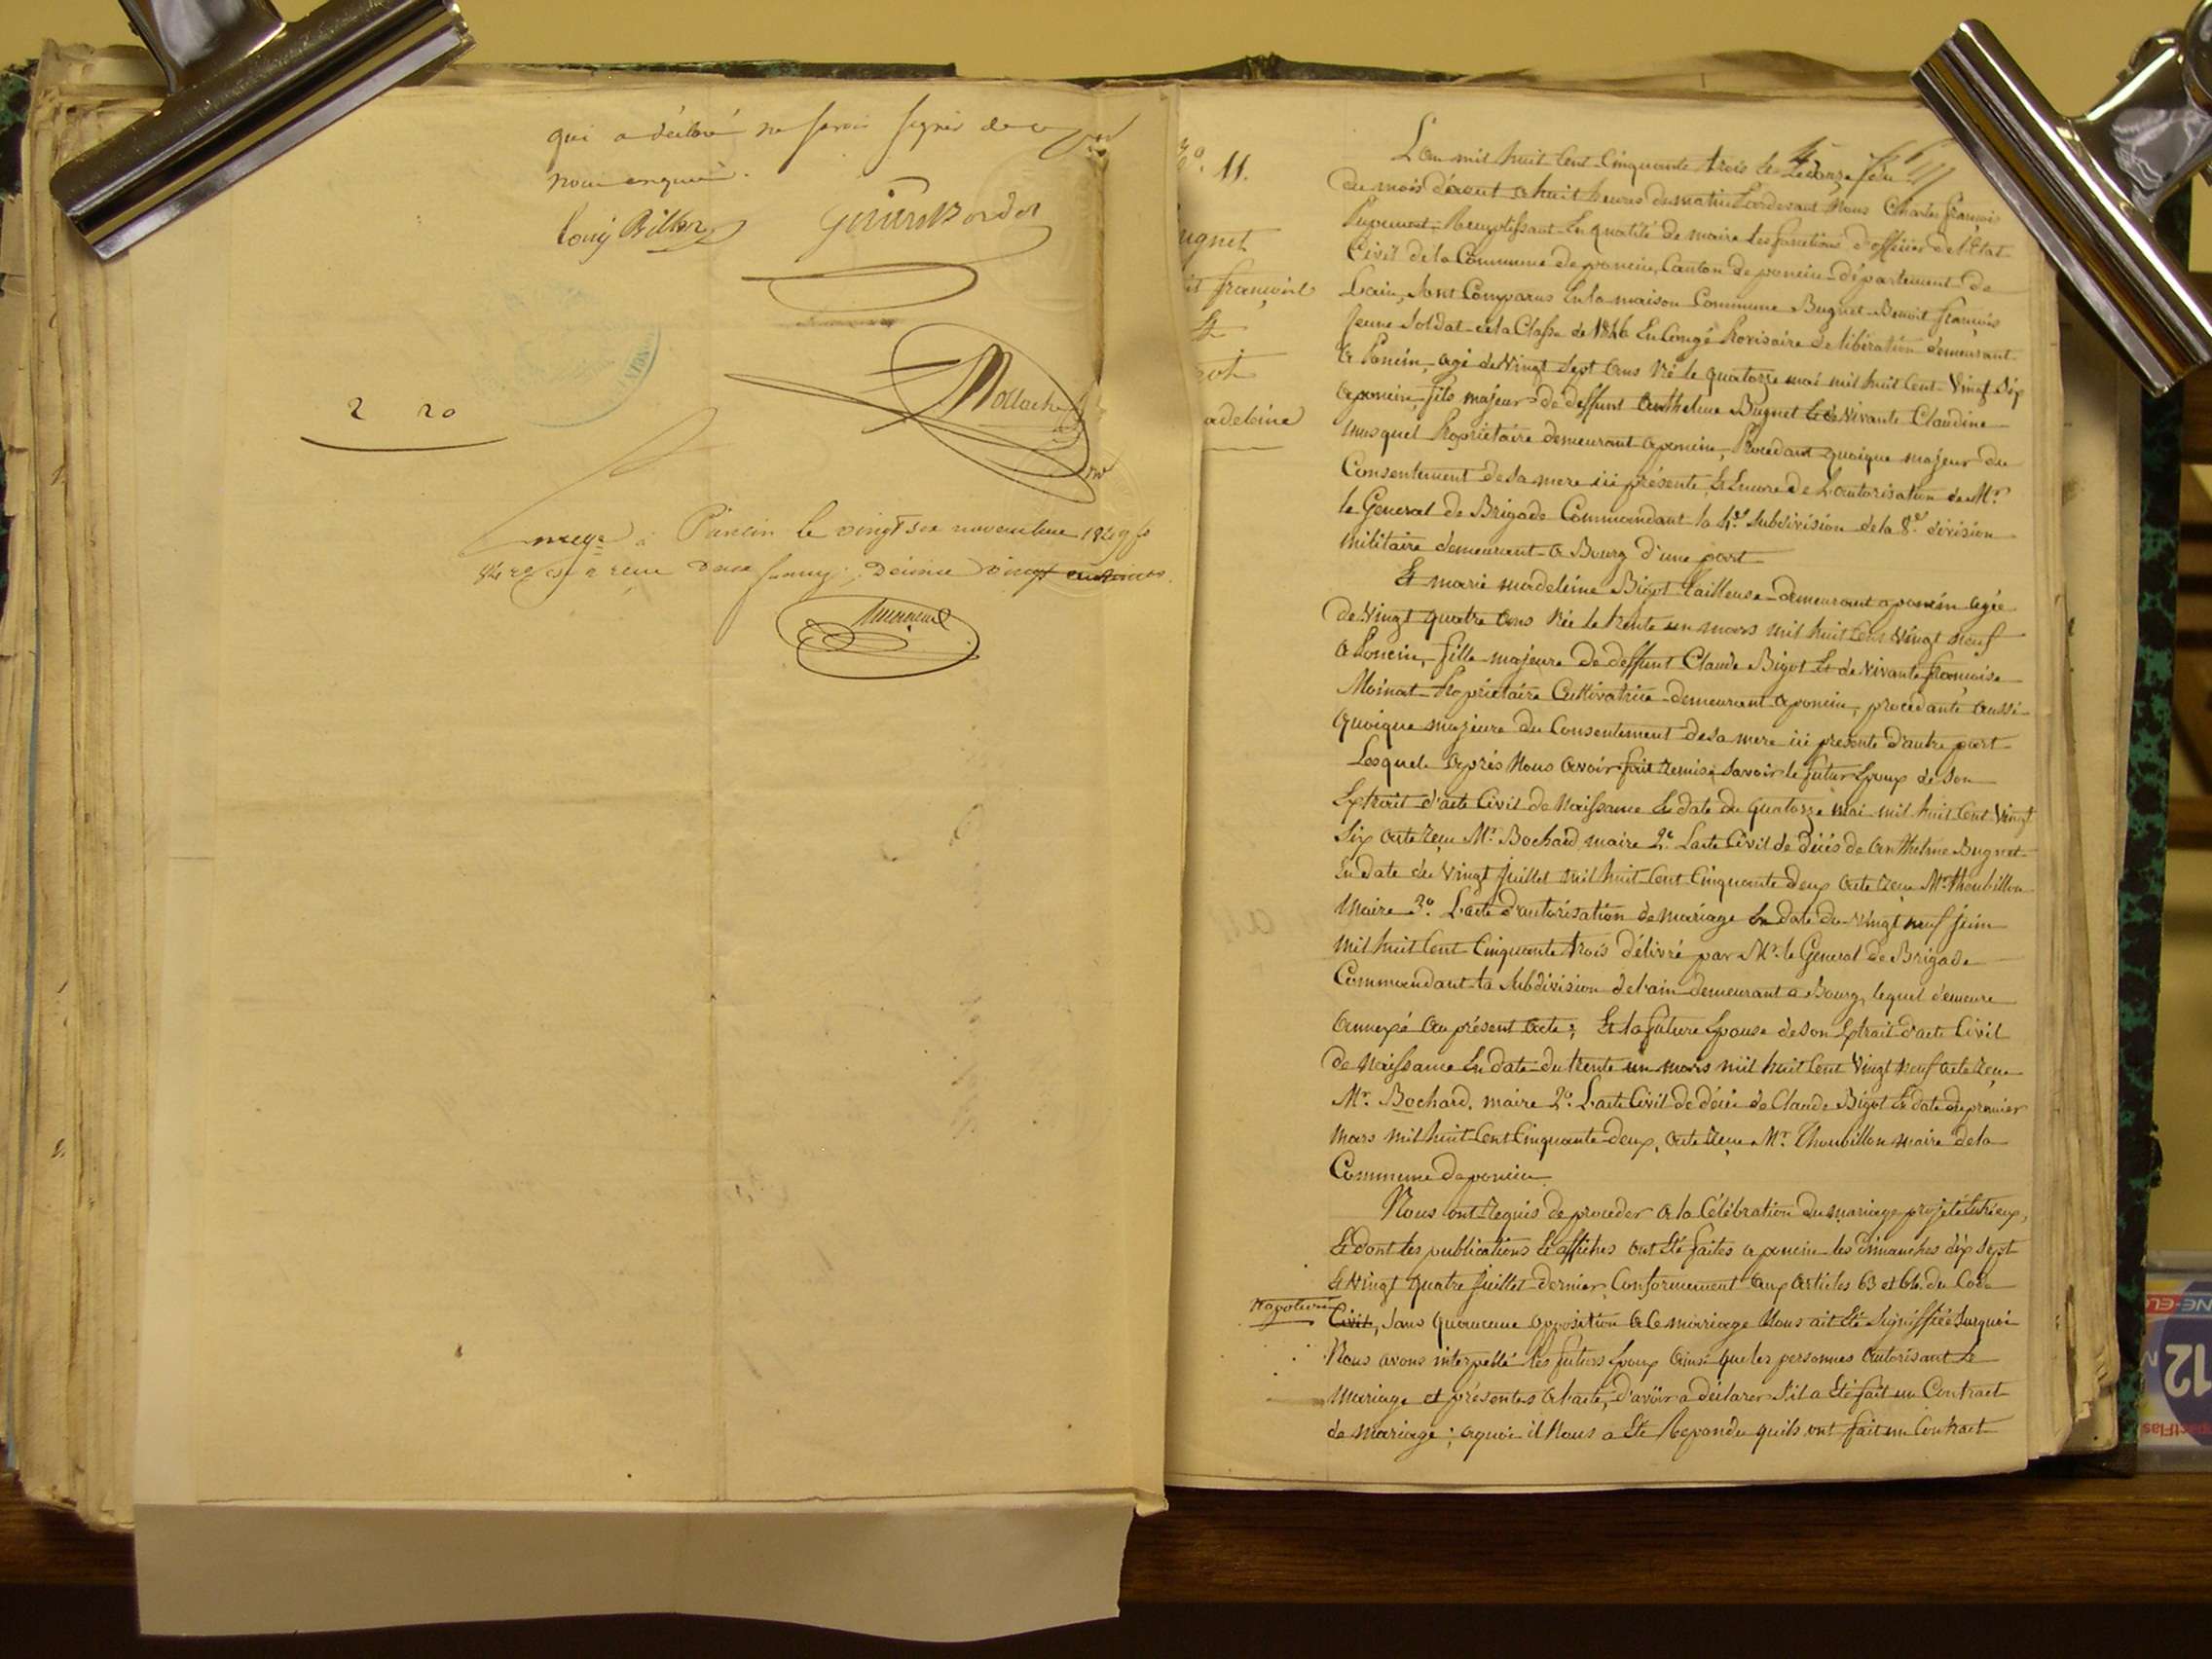 qui a déclaré ne savoir signer de ce
nous enquis.
Louis Billon Girard Bordet
2 20
Poncin le vingt six novembre 1849
reçu deux francs, décime vingt centimes.
N°. 11.
ugnet
it françois
Et
ot
adeleine
L'an mil huit Cent Cinquante trois Le
du mois d'aout a huit heures du matin Pardevant Nous Charles françois
Remplissant En qualité de maire Les fonctions d'officier de l'Etat
Civil de la Commune de poncin, Canton de poncin département de
L'ain, Sont Comparus En la maison Commune Bugnet Benoit françois
Jeune Soldat de la Classe de 1846 En Congé Provisoire de libération demeurant
a Poncin, agé de Vingt Sept Ans Né le quatorze mai mil huit Cent Vingt Six
a poncin, fils majeur de deffunt Anthelme Bugnet Et de Vivante Claudine
Musquet Propriétaire demeurant a poncin, Procédant quoique majeur du
Consentement de sa mere ici présente, Et Encore de L'autorisation de Mr.
le General de Brigade Commandant la 4e. Subdivision de la 8e. division
militaire demeurant a Bourg d'une part
Et marie madeleine Bigot Tailleuse demeurant a poncin agée
de Vingt quatre Ans Née Le trente un mars mil huit Cent Vingt neuf
a Poncin, fille majeure de deffunt Claude Bigot Et de Vivante françoise
Moinat Propriétaire Cultivatrice demeurant a poncin, procédante aussi
quoique majeure du Consentement de sa mere ici présente d'autre part
Lesquels Après Nous Avoir fait Remise, Savoir le futur Epoux de Son
Extrait d'acte Civil de Naissance En date du quatorze mai mil huit Cent Vingt
Six acte reçu Mr. Bochard maire 2°. L'acte Civil de décès de Anthelme Bugnet
En date du Vingt Juillet mil huit Cent Cinquante deux acte reçu Mr. Thoubillon
Maire 3°. L'acte d'autorisation de mariage En date du Vingt neuf Juin
mil huit Cent Cinquante trois délivré par Mr. le General de Brigade
Commandant la Subdivision de l'ain demeurant a Bourg, lequel demeure
Annexé Au présent Acte; Et la future Epouse de Son Extrait d'acte Civil
de Naissance En date du trente un mars mil huit Cent Vingt neuf acte reçu
Mr. Bochard, maire 2°. L'acte Civil de décès de Claude Bigot En date du premier
mars mil huit Cent Cinquante deux, acte reçu Mr. Thoubillon maire de la
Commune de poncin
Nous ont Requis de procéder a la Célébration du mariage projeté Entr'eux,
Et dont les publications Et affiches ont Eté faites a poncin les dimanches dix Sept
Et Vingt quatre Juillet dernier Conformement aux articles 63 et 64 du Code
Napoleon
Civil, Sans qu'aucune opposition a Ce mariage Nous ait Eté Signiffiée Surquoi
Nous avons interpellé les futurs Epoux Ainsi que les personnes autorisant Le
Mariage et présentes a l'acte, d'avoir a déclarer S'il a Eté fait un Contract
de mariage; a quoi il Nous a Eté Repondu qu'ils ont fait un Contract